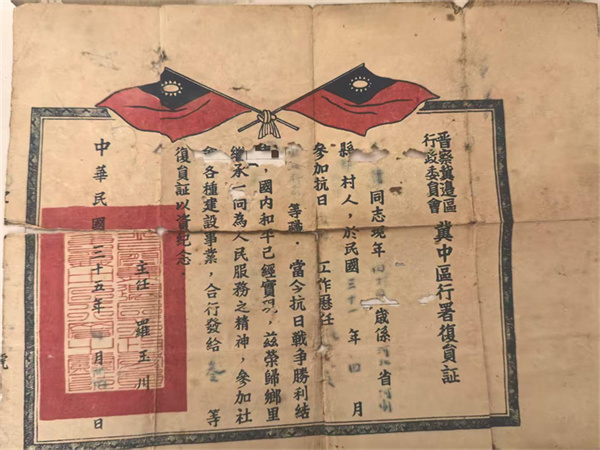 晋察冀邊區
行政委員會
冀中區行署復員証
同志現年 歲係 省
縣 村人，於民國三十一年四月
參加抗日 工作歷任
等職．當今抗日戰爭勝利結
，國內和平已經實現，茲榮歸鄉里
繼承一向為人民服務之精神，參加社
會各種建設事業，合行發給 等
復員証以資紀念
主任 羅玉川
中華民國三十五年 月 日
號